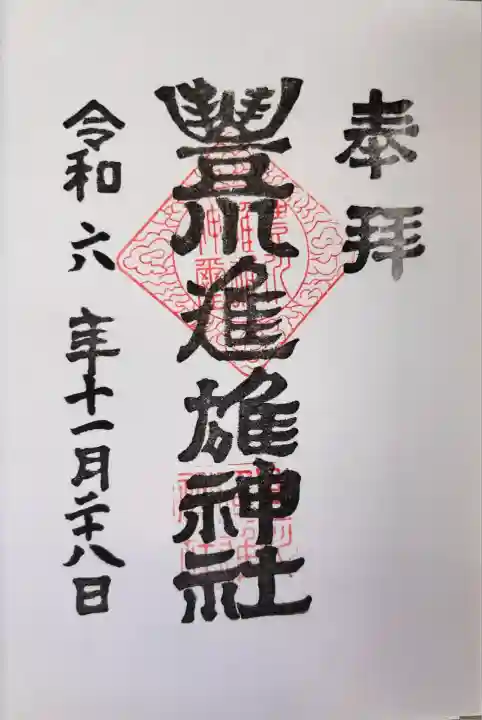 奉拝
豐川進雄神社
令和六年十一月二十八日